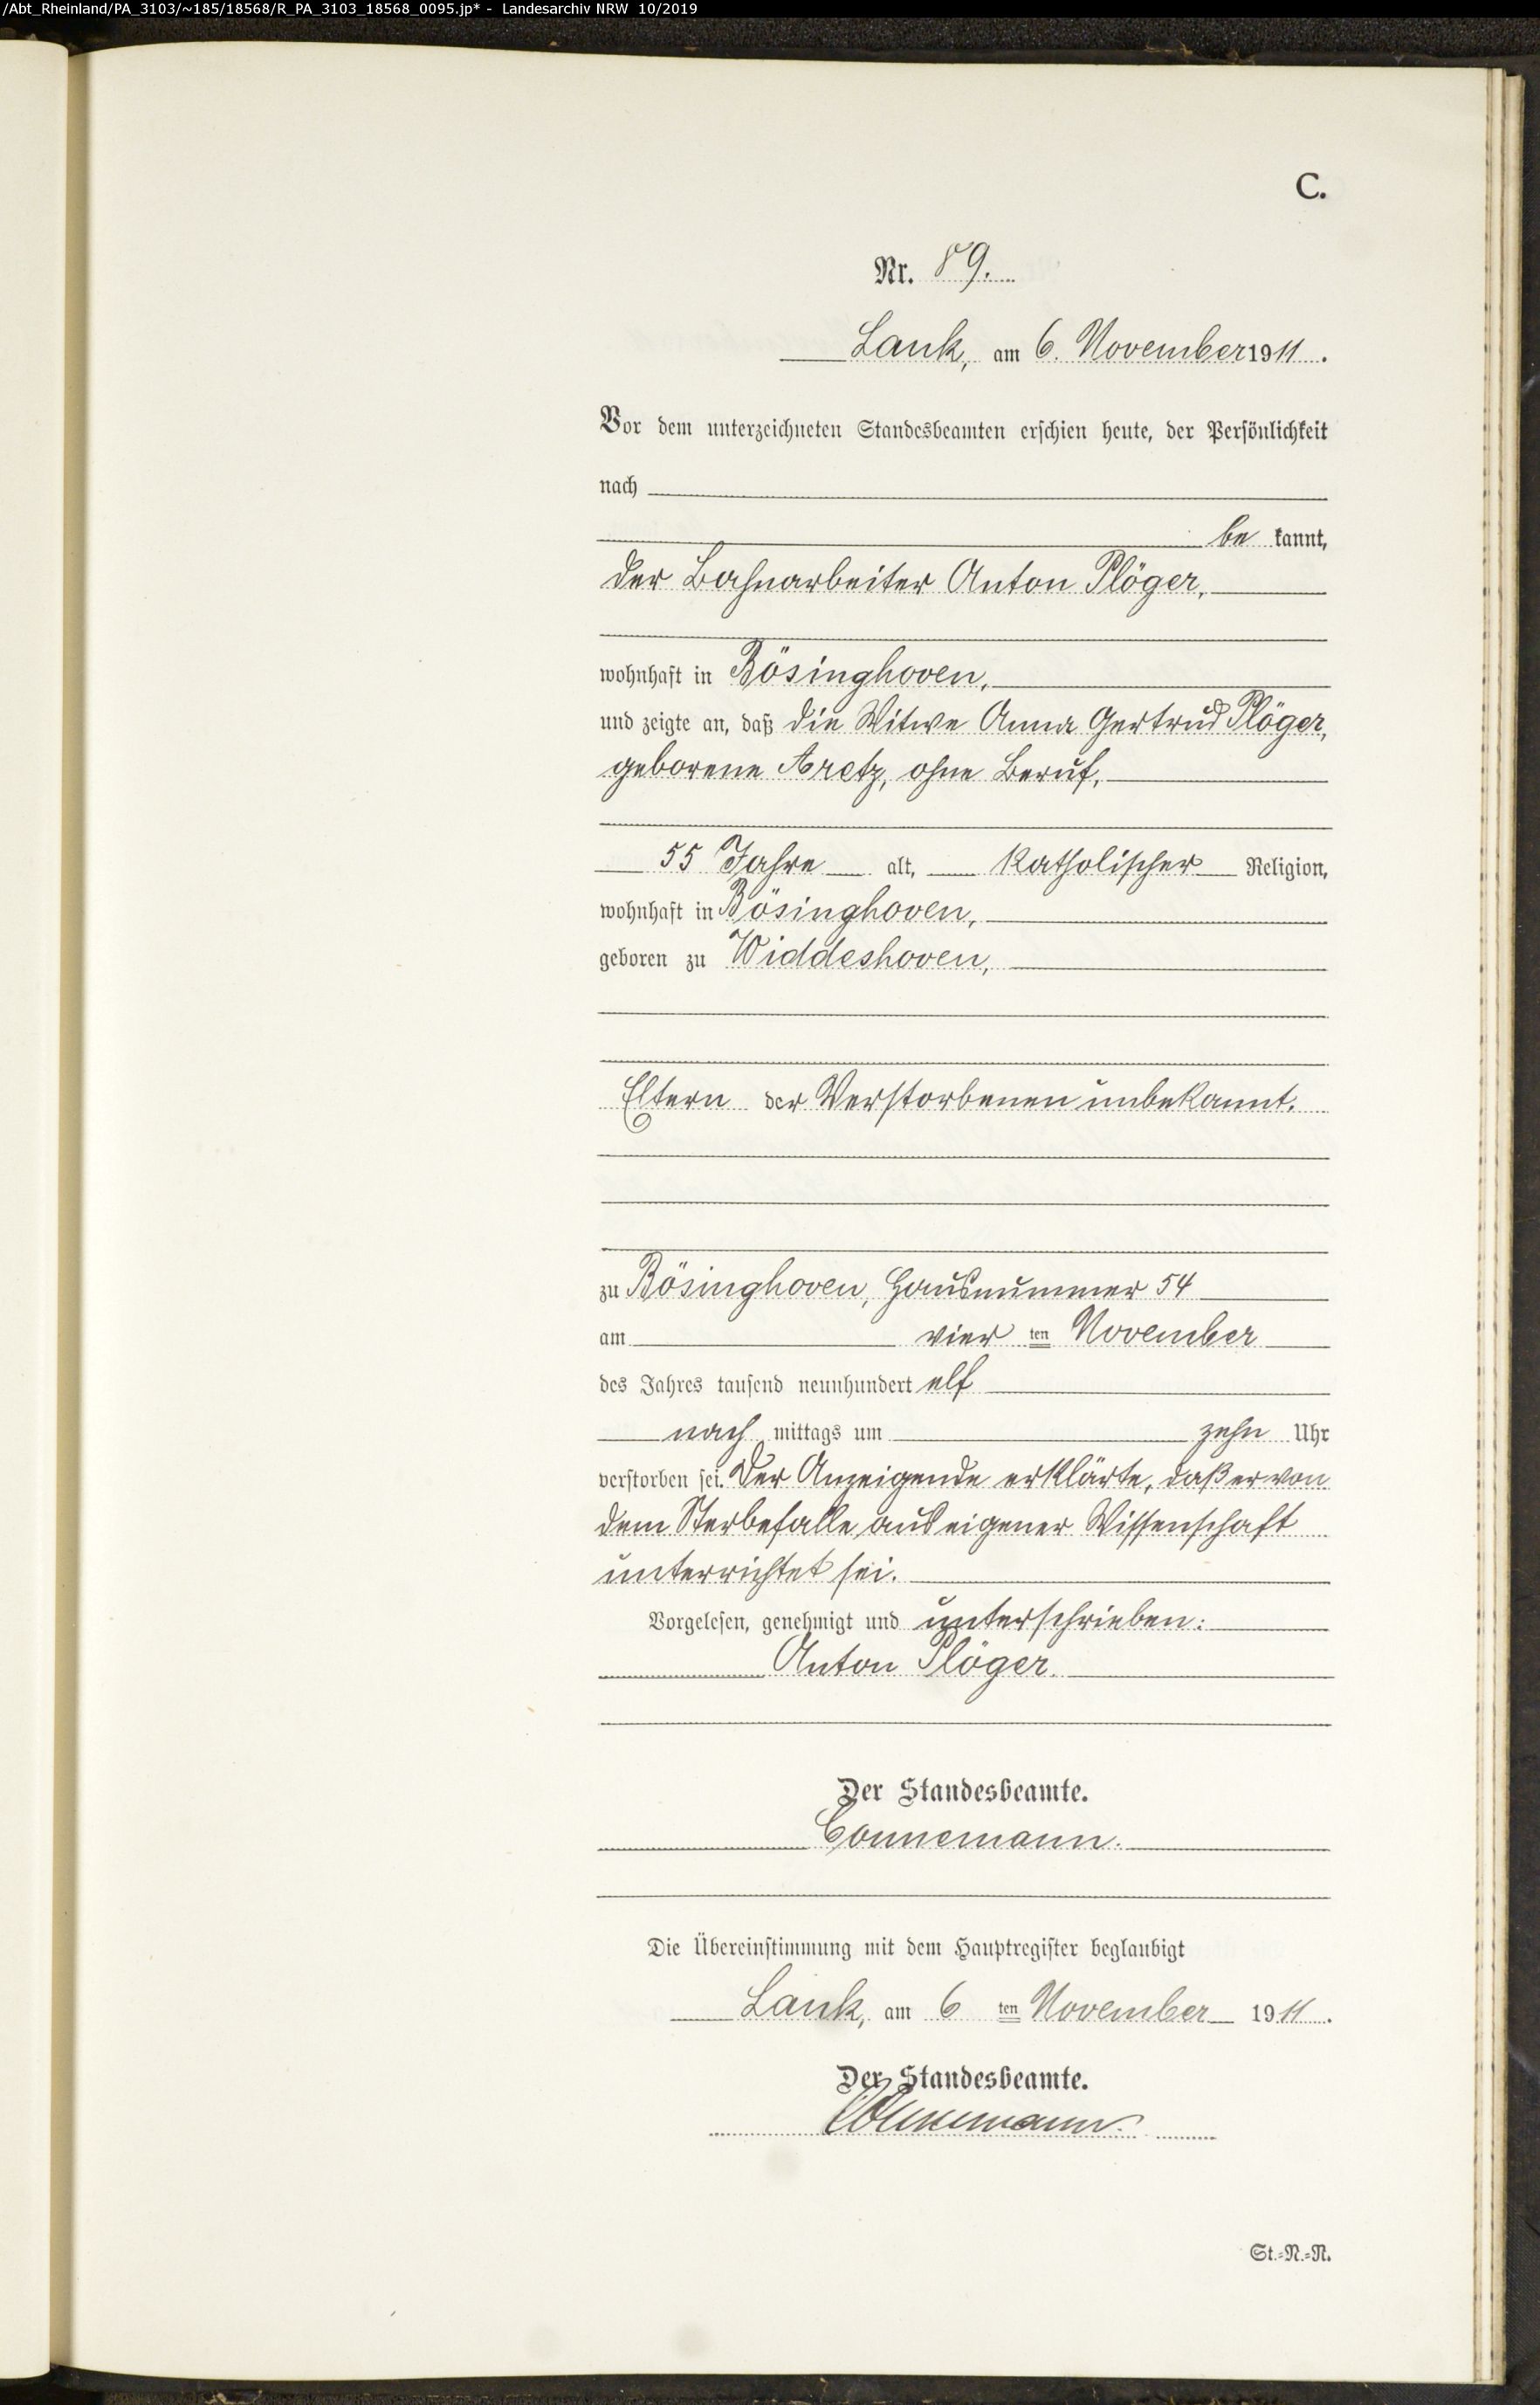 /Abt_Rheinland/PA_3103/~185/18568/R_PA_3103_18568_0095.jp* - Landesarchiv NRW 10/2019
C.
Nr. 89.
Lank, am 6. November 1911.
Vor dem unterzeichneten Standesbeamten erschien heute, der Persönlichkeit
nach
be kannt,
der Bahnarbeiter Anton Plöger,
wohnhaft in Bösinghoven,
und zeigte an, daß die Witwe Anna Gertrud Plöger,
geborene Aretz, ohne Beruf,
55 Jahre alt, katholischer Religion,
wohnhaft in Bösinghoven,
geboren zu Widdeshoven,
Eltern der Verstorbenen unbekannt.
zu Bösinghoven, Hausnummer 54
am vier ten November
des Jahres tausend neunhundert elf
nach mittags um zehn Uhr
verstorben sei. Der Anzeigende erklärte, daß er von
dem Sterbefalle aus eigener Wissenschaft
unterrichtet sei.
Vorgelesen, genehmigt und unterschrieben:
Anton Plöger.
Der Standesbeamte.
Connemann.
Die Übereinstimmung mit dem Hauptregister beglaubigt
Lank, am 6 ten November 1911.
Der Standesbeamte.
Connemann.
St.=N.=N.